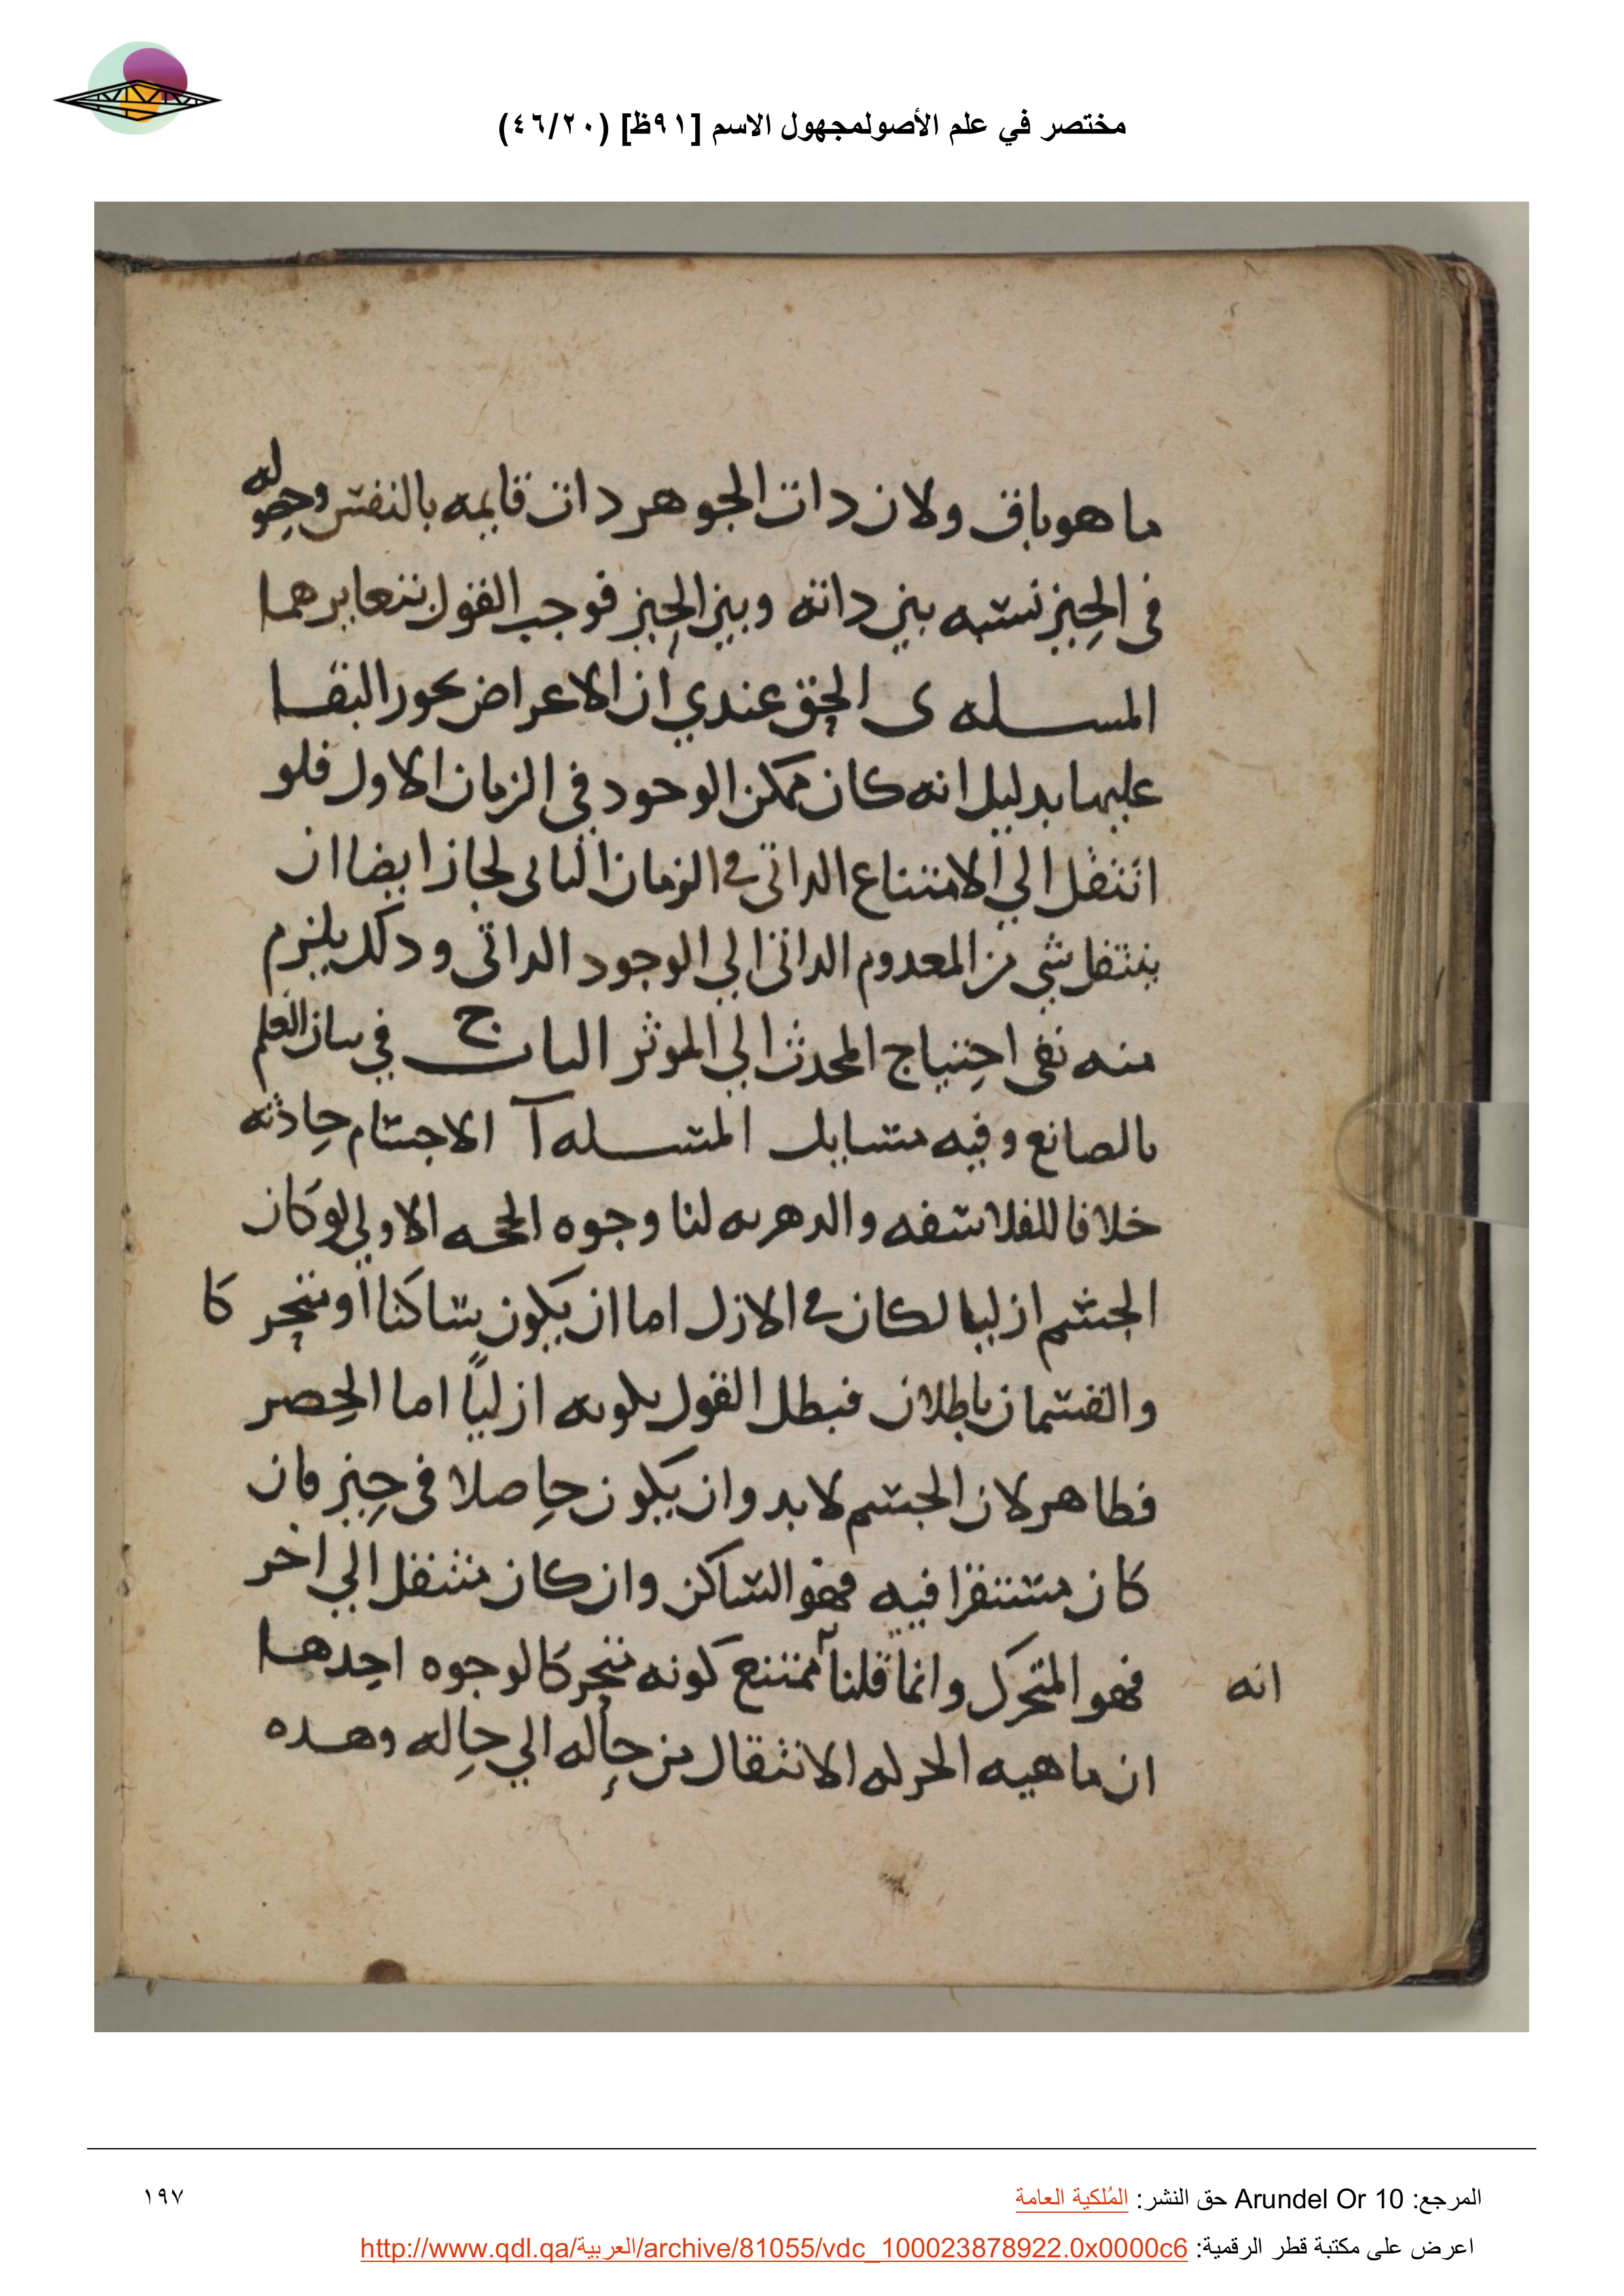 مختصر في علم الأصولمجهول الاسم [٩١ظ] (٤٦/٢٠)
ما هو باق ولان دات الجوهر دات قايمه بالنفس وحصوله
في الحيز نسبه بين داته وبين الحيز فوجب القول بتغايرهما
المسله ى الحق عندي ان الاعراض يجوز البقا
عليها بدليل انه كان ممكن الوجود في الزمان الاول فلو
انتقل الي الامتناع الداتي في الزمان الثاني لجاز ايضا ان
ينتقل شي من المعدوم الداتي الي الوجود الداتي ودلك يلزم
منه نفي احتياج المحدث الي الموثر الباب ج في بيان العلم
بالصانع وفيه مسايل المسله آ الاجسام حادثه
خلافا للفلاسفه والدهريه لنا وجوه الحجه الاولي لو كان
الجسم ازليا لكان في الازل اما ان يكون ساكنا او متحركا
والقسمان باطلان فبطل القول بكونه ازلياً اما الحصر
فظاهر لان الجسم لا بد وان يكون حاصلا في حيز فان
كان مستقرا فيه فهو الساكن وان كان منتقل الي اخر
فهو المتحرك وانما قلنا ممتنع كونه متحركا لوجوه احدها
انه
ان ماهيه الحركه الانتقال من حاله الي حاله وهده
المرجع: Arundel Or 10 حق النشر: المُلكية العامة
١٩٧
اعرض على مكتبة قطر الرقمية: http://www.qdl.qa/العربية/archive/81055/vdc_100023878922.0x0000c6